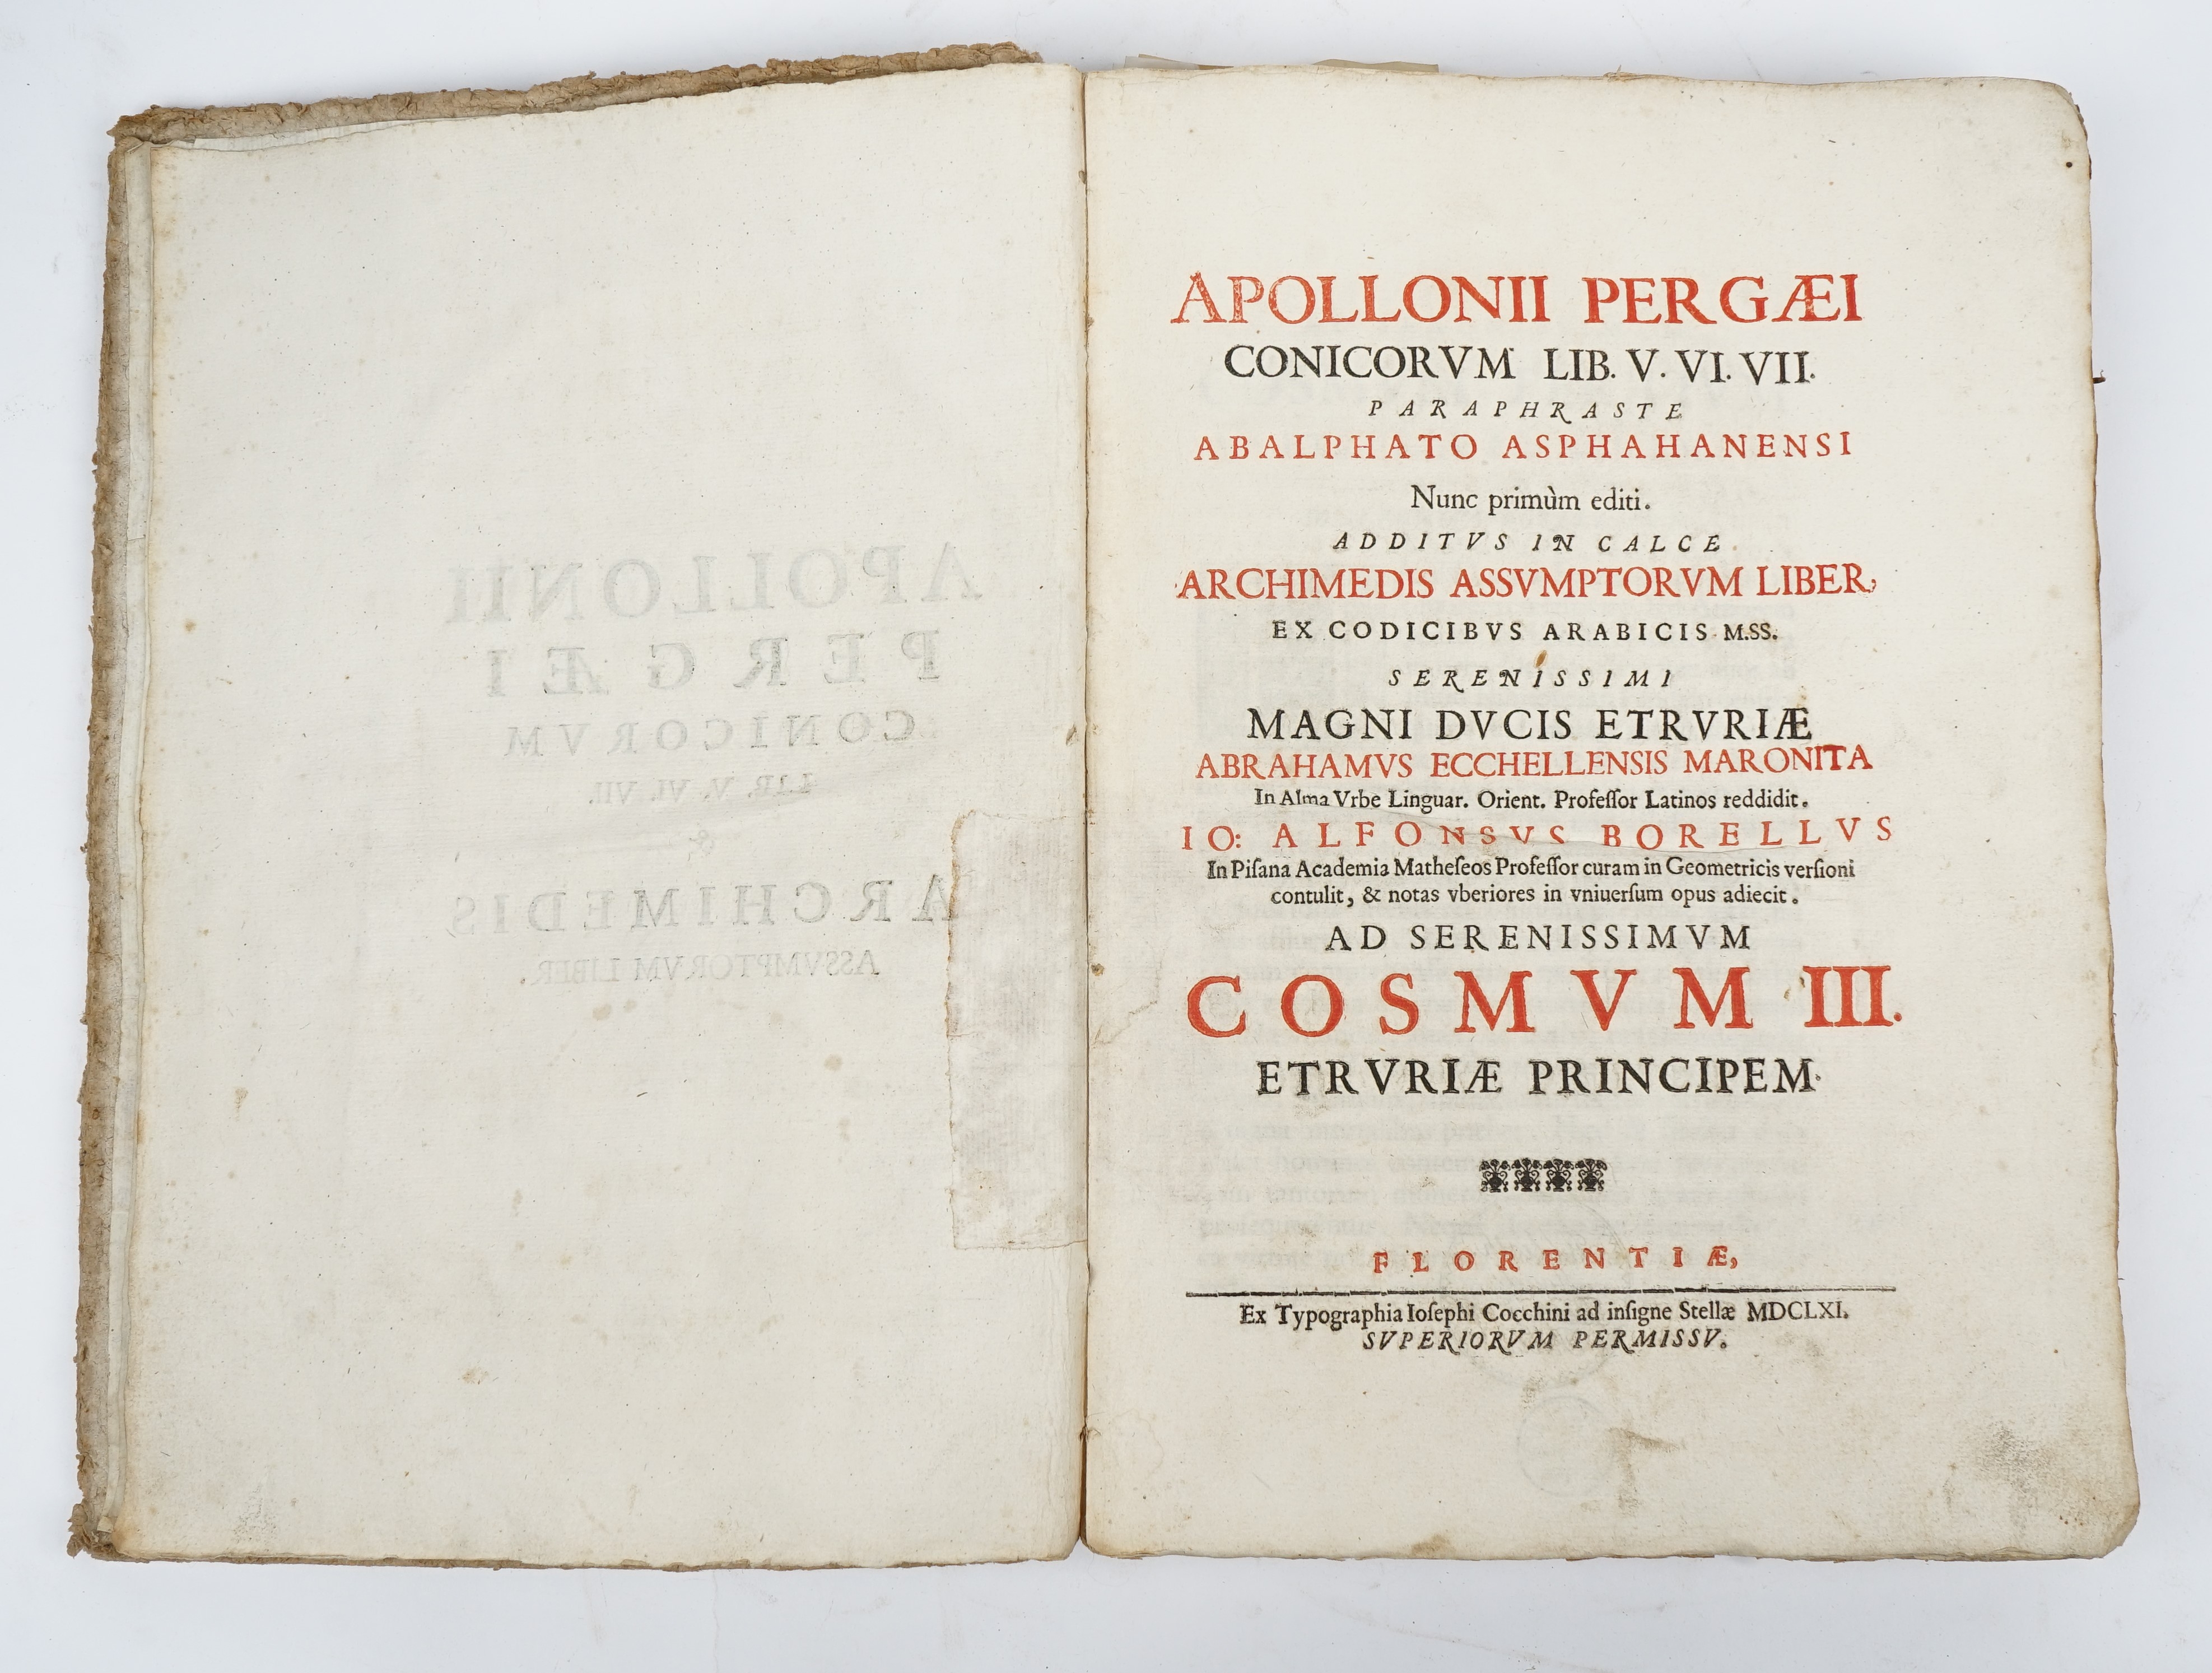 APOLLONII
PERGÆI
CONICORVM
LIB. V. VI. VII.
&
ARCHIMEDIS
ASSVMPTORVM LIBER.
APOLLONII PERGÆI
CONICORVM LIB. V. VI. VII.
PARAPHRASTE
ABALPHATO ASPHAHANENSI
Nunc primùm editi.
ADDITVS IN CALCE
ARCHIMEDIS ASSVMPTORVM LIBER,
EX CODICIBVS ARABICIS M.SS.
SERENISSIMI
MAGNI DVCIS ETRVRIÆ
ABRAHAMVS ECCHELLENSIS MARONITA
In Alma Vrbe Linguar. Orient. Profeſſor Latinos reddidit.
IO: ALFONSVS BORELLVS
In Piſana Academia Matheſeos Profeſſor curam in Geometricis verſioni
contulit, & notas vberiores in vniuerſum opus adiecit.
AD SERENISSIMVM
COSMVM III.
ETRVRIÆ PRINCIPEM.
FLORENTIÆ,
Ex Typographia Ioſephi Cocchini ad inſigne Stellæ MDCLXI.
SVPERIORVM PERMISSV.